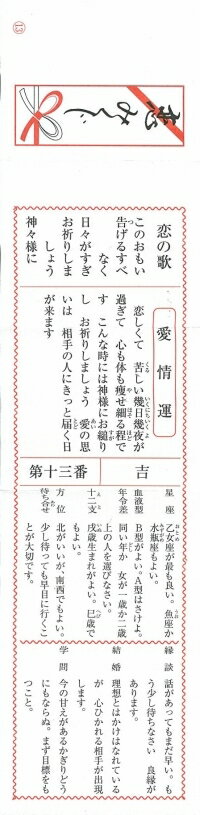 13
恋みくじ
恋の歌
このおもい
告げるすべ
なく
日々がすぎ
お祈りしま
しょう
神々様に
愛情運
恋しくて 苦しい幾日幾夜が
過ぎて 心も体も痩せ細る程で
す こんな時には神様にお縋り
し お祈りしましょう 愛の思
いは 相手の人にきっと届く日
が来ます
第十三番 吉
星座 乙女座が最も良い。魚座か
水瓶座もよい。
血液型 B型がよい。A型はさけよ。
年令差 同い年か 女が一歳か二歳
上の人を選びなさい。
十二支 戌歳生まれがよい。巳歳で
もよい。
方位 北がいいが、南西でもよい。
待ち合せ 少し待っても早目に行くこ
とが大切です。
縁談 話があってもまだ早い。も
う少し待ちなさい 良縁が
あります。
結婚 理想とはかけはなれている
が 心ひかれる相手が出現
します。
学問 今の甘えがあるかぎりどう
にもならぬ。まず目標をも
つこと。